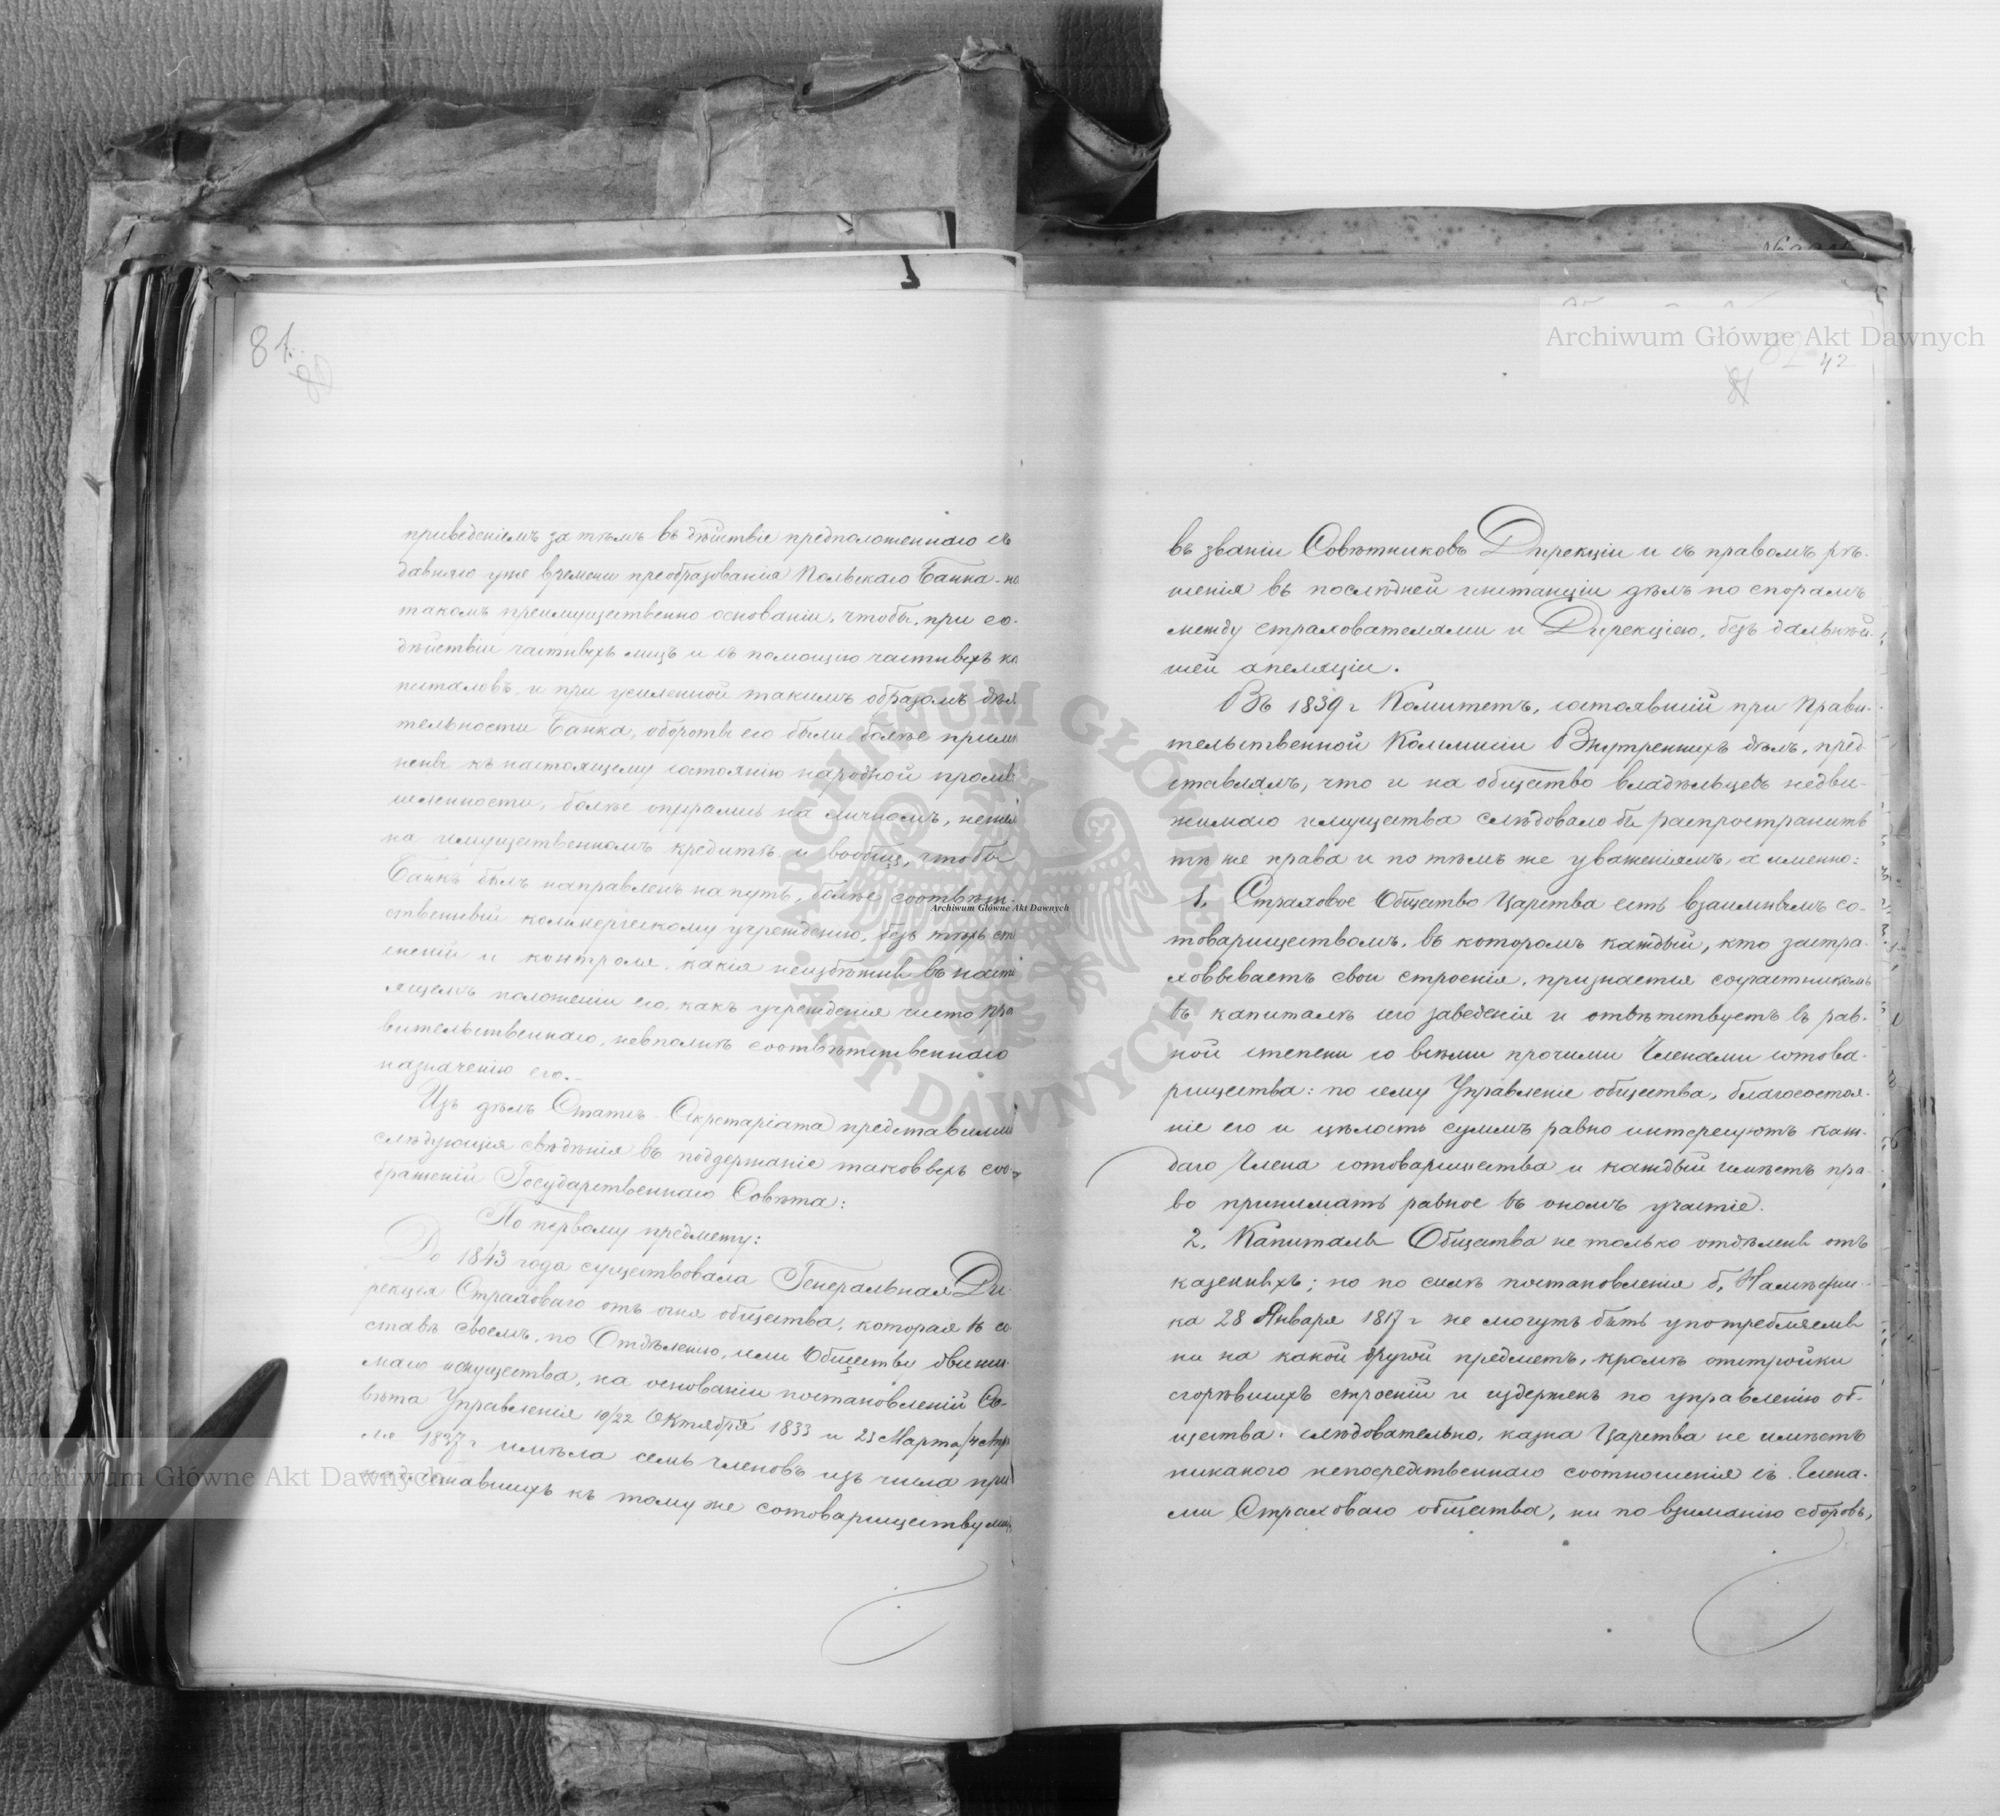 81.
80
приведеніемъ за тѣмъ въ дѣйствіе предположеннаго съ
давняго уже времени преобразованія Польскаго Банка на
такомъ преимущественно основаніи, чтобы, при со-
дѣйствіи частныхъ лицъ и съ помощію частныхъ ка
питаловъ, и при усиленной такимъ образомъ дѣя
тельности Банка, обороты его были болѣе примѣ
нены къ настоящему состоянію народной промы
шленности, болѣе опирались на личномъ, нежели
на имущественномъ кредитѣ и вообще, чтобы
Банкъ былъ направленъ на путь, болѣе соотвѣт-
ственный коммерческому учрежденію, безъ тѣхъ стѣ
сненій и контроля, какія неизбѣжны въ насто
ящемъ положеніи его, какъ учрежденія чисто пра
вительственнаго, невполнѣ соотвѣтственнаго
назначенію его.
Изъ дѣлъ Статсъ-Секретаріата представились
слѣдующія свѣдѣнія въ поддержаніе таковыхъ соо-
браженій Государственнаго Совѣта:
По первому предмету:
До 1843 года существовала Генеральная Ди-
рекція Страховаго отъ огня общества, которая въ со
ставѣ своемъ, по Отдѣленію, или Обществу движи-
маго имущества, на основаніи постановленій Со-
вѣта Управленія 10/22 Октября 1833 и 23 Марта/4 Апрѣ
ля 1837 г имѣла семь членовъ изъ числа при
надлежавшихъ къ тому же сотовариществу лицъ
82
42
81
въ званіи Совѣтниковъ Дирекціи и съ правомъ рѣ-
шенія въ послѣдней инстанціи дѣлъ по спорамъ
между страхователями и Дирекціею, безъ дальнѣй-
шей апеляціи.
Въ 1839 г Комитетъ, состоявшій при Прави-
тельственной Коммисіи Внутреннихъ дѣлъ, пред-
ставлялъ, что и на общество владѣльцевъ недви-
жимаго имущества слѣдовало бы распространить
тѣ же права и по тѣмъ же уваженіямъ, а именно:
1. Страховое Общество Царства есть взаимнымъ со-
товариществомъ, въ которомъ каждый, кто застра-
ховываетъ свои строенія, признается соучастникомъ
въ капиталѣ его заведенія и отвѣтствуетъ въ рав-
ной степени со всѣми прочими Членами сотова-
рищества: по сему Управленіе общества, благосостоя-
ніе его и цѣлость суммъ равно интересуютъ каж-
даго Члена сотоварищества и каждый имѣетъ пра-
во принимать равное въ ономъ участіе.
2. Капиталы Общества не только отдѣлены отъ
казенныхъ; но по силѣ постановленія б. Намѣстни-
ка 28 Января 1817 г не могутъ быть употребляемы
ни на какой другой предметъ, кромѣ отстройки
сгорѣвшихъ строеній и издержекъ по управленію об-
щества: слѣдовательно, казна Царства не имѣетъ
никакого непосредственнаго соотношенія съ Члена-
ми Страховаго общества, ни по взиманію сборовъ,
Archiwum Główne Akt Dawnych
Archiwum Główne Akt Dawnych
Archiwum Główne Akt Dawnych
ARCHIWUM GŁÓWNE AKT DAWNYCH